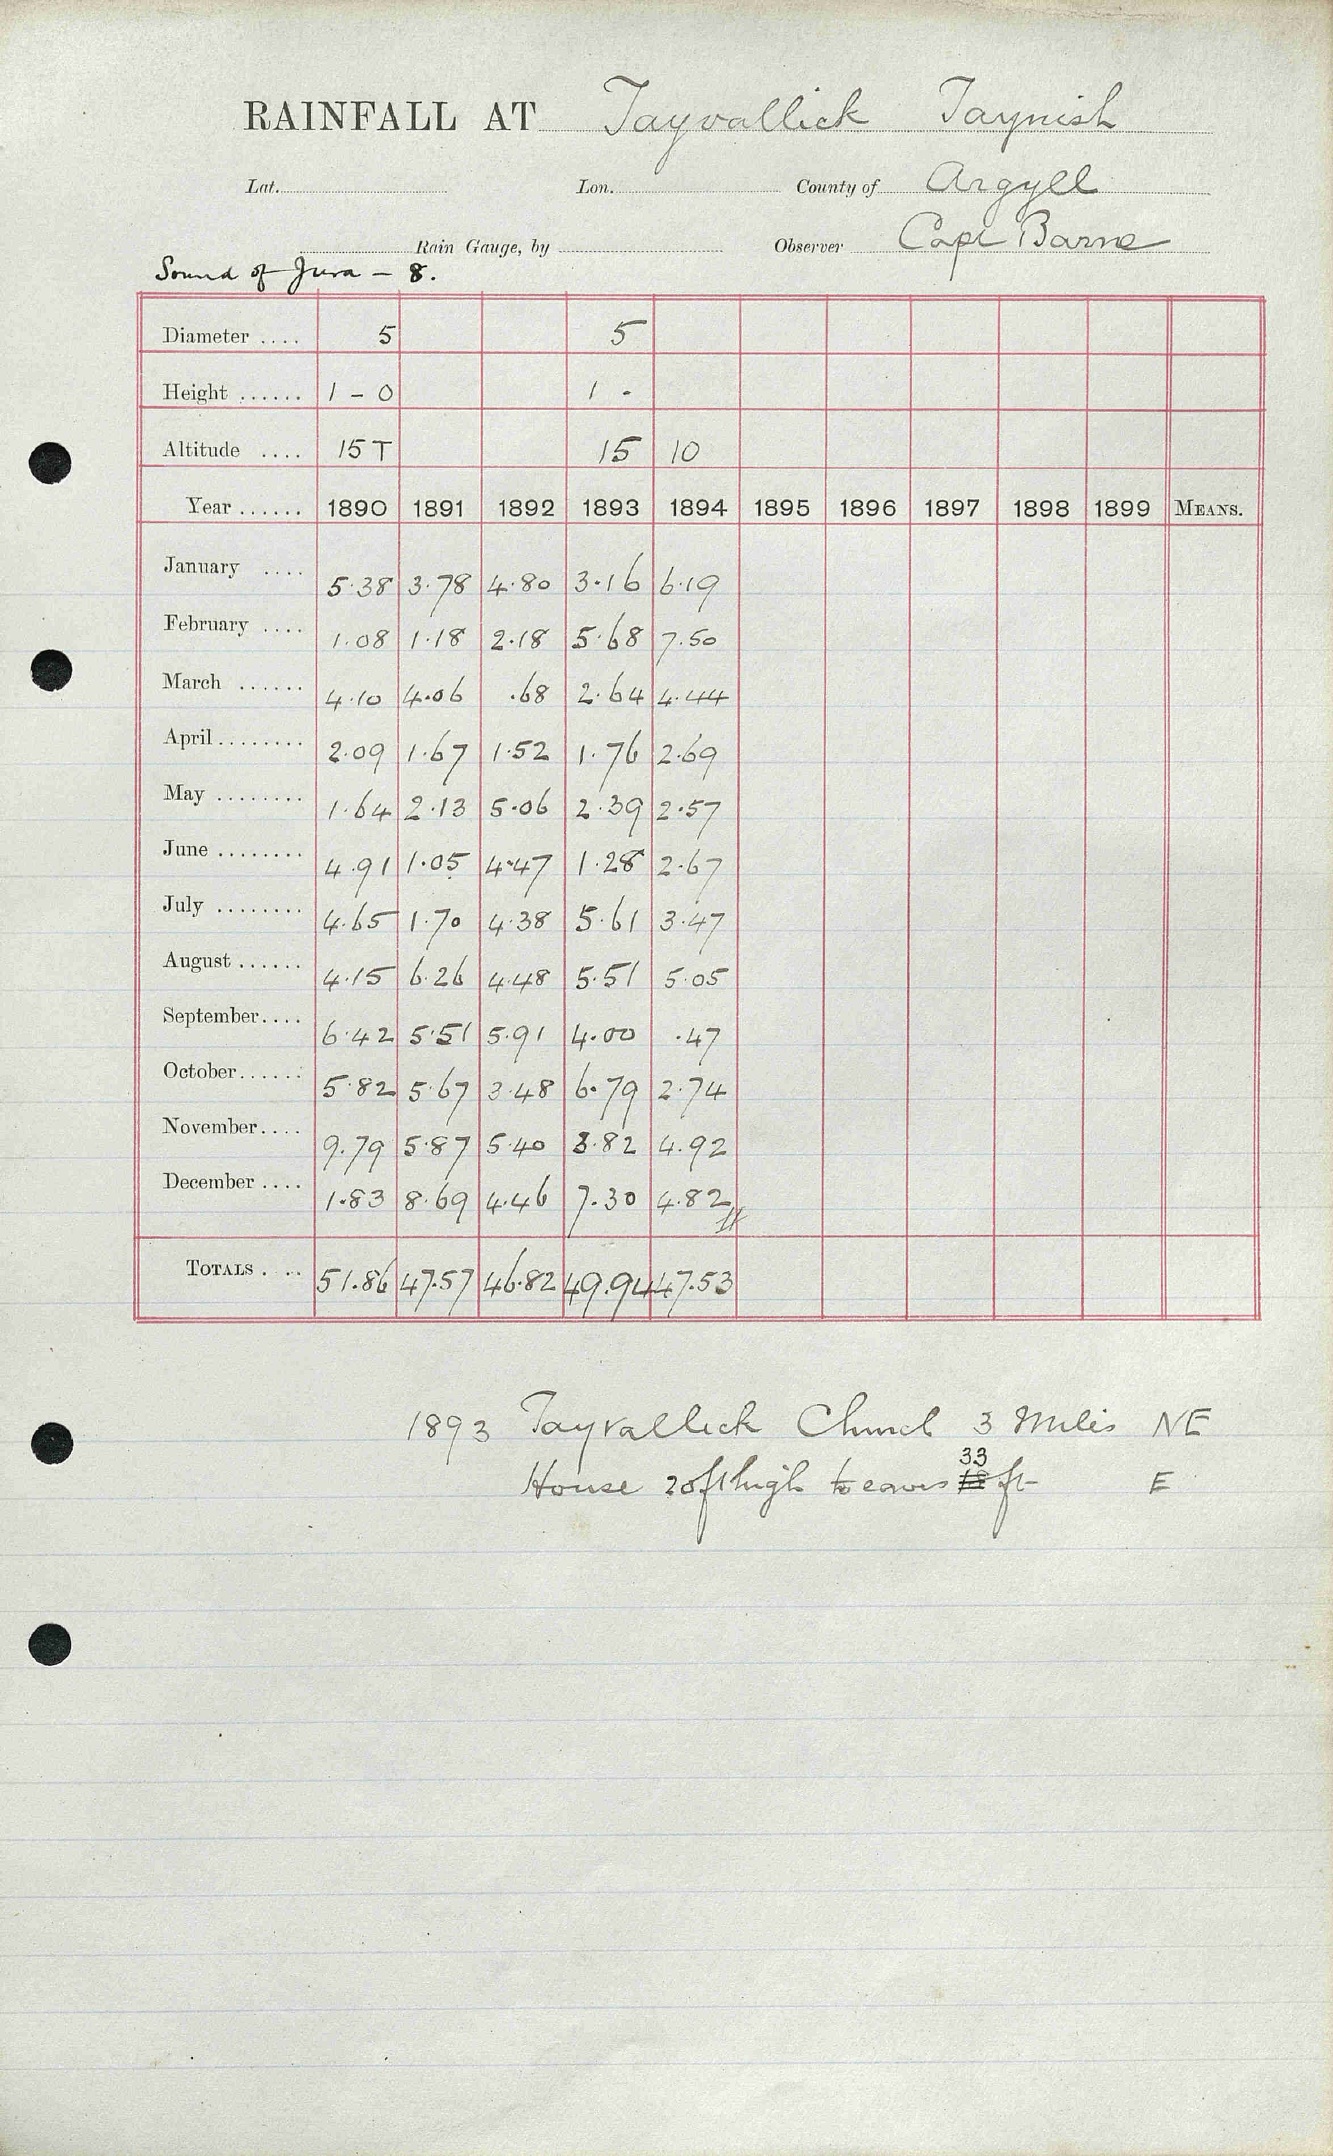 RAINFALL AT Tayvallick Taynish
Lat. Lon. County of Argyll
Rain Gauge, by Observer Capt Barne
Sound of Jura – 8.
Diameter .... 5 5
Height ...... 1 - 0 1 -
Altitude .... 15 T 15 10
Year ...... 1890 1891 1892 1893 1894 1895 1896 1897 1898 1899 MEANS.
January .... 5.38 3.78 4.80 3.16 6.19
February .... 1.08 1.18 2.18 5.68 7.50
March ...... 4.10 4.06 .68 2.64 4.44
April ........ 2.09 1.67 1.52 1.76 2.69
May ........ 1.64 2.13 5.06 2.39 2.57
June ........ 4.91 1.05 4.47 1.28 2.67
July ........ 4.65 1.70 4.38 5.61 3.47
August ...... 4.15 6.26 4.48 5.51 5.05
September.... 6.42 5.51 5.91 4.00 .47
October...... 5.82 5.67 3.48 6.79 2.74
November.... 9.79 5.87 5.40 3.82 4.92
December .... 1.83 8.69 4.46 7.30 4.82
TOTALS . .. 51.86 47.57 46.82 49.94 47.53
1893 Tayvallick Church 3 Miles NE
33
House 20ft high to eaves 18 ft E